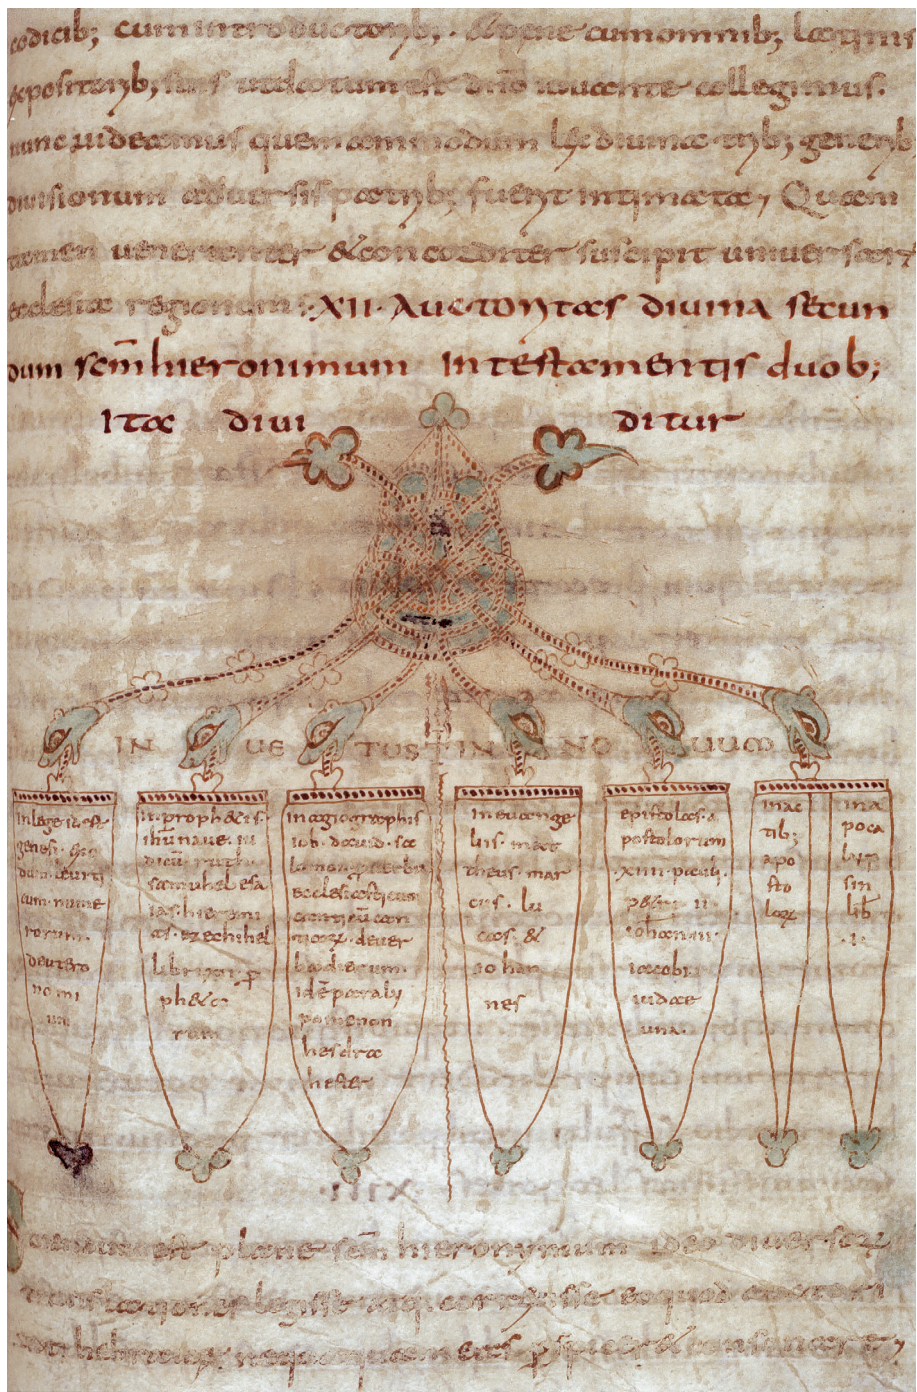 codicib; cum introductoryb;. & pene cum omnib; latinis
expositoryb; suis ut datum est dno iuuante collegimus.
nunc uideamus quem ammodum lex diuina tryb; generyb
diuisionum a diuersis patryb; fueryt intimata, Quam
tamen ueneranter & concorditer suscipit uniuersary
eclesia regionum :. XII. Auctorytas diuina secun
dum scm hieronimum In testamentis duob;
Ita diui ditur
IN UE TUST IN NO UUM
In lege id est
genesi. exo
dum. leuiti
cum. nume
rorum.
deutero
nomi
um
In prophetis.
ihu naue. iu
dicu. ruth.
samuhel esa
ias. hieremi
as. ezechihel
libri XII. p
ph&a
rum
In agiographis
iob. dauid. sa
lomon. prouerbia
ecclesiasticus
canticu can
ticorum. dever
ba dierum.
id e paraly
pomenon
hesdra
hester
In euange
liis. mat
theus. mar
cus. lu
cas. &
iohan
nes
epistolas a
postolorum
.XIIII. pauli.
petri. II
iohan. III.
iacobi.
iudae
una.
In ac
tib;
apo
sto
lorum
In a
poca
lypsin
lib
.I.
plane scm hieronymum ideo diuersorum
translationes legisse atq; correxisse eoquod auctori